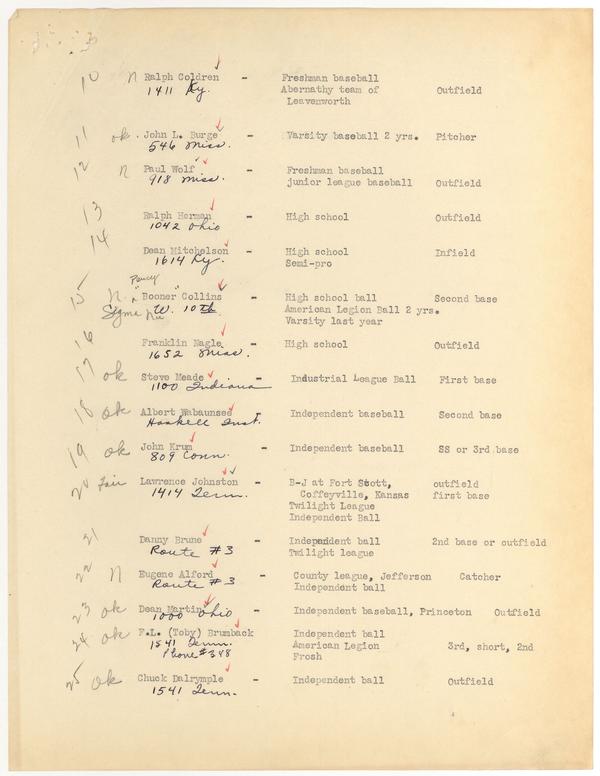 10 n Ralph Coldren - Freshman baseball
1411 Ky. Abernathy team of Outfield
Leavenworth
11 ok. John L. Burge - Varsity baseball 2 yrs. Pitcher
546 Miss.
12 n Paul Wolf - Freshman baseball
918 Miss. junior league baseball Outfield
13 Ralph Herman - High school Outfield
1042 Ohio
14 Dean Mitchelson - High school Infield
1614 Ky. Semi-pro
15 n. "Booner" Collins - High school ball Second base
Sigma Nu W. 10th American Legion Ball 2 yrs.
Varsity last year
16 Franklin Nagle - High school Outfield
1652 Miss.
17 ok Steve Meade - Industrial League Ball First base
1100 Indiana
18 ok Albert Wabaunsee - Independent baseball Second base
Haskell Inst.
19 ok John Krum - Independent baseball SS or 3rd base
809 Conn.
20 Fair Lawrence Johnston - B-J at Fort Scott, outfield
1414 Tenn. Coffeyville, Kansas first base
Twilight League
Independent Ball
21 Danny Brune - Independent ball 2nd base or outfield
Route #3 Twilight league
22 N Eugene Alford - County league, Jefferson Catcher
Route #3 Independent ball
23 ok Dean Martin - Independent baseball, Princeton Outfield
1000 Ohio
24 ok F.L. (Toby) Brumback Independent ball
1541 Tenn. American Legion 3rd, short, 2nd
Phone #348 Frosh
25 ok Chuck Dalrymple - Independent ball Outfield
1541 Tenn.